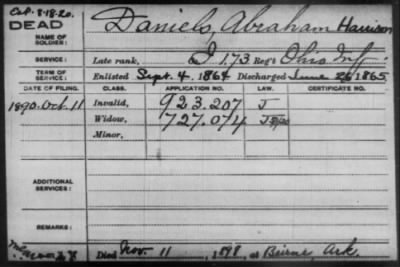 Cal. 8-18-20.
DEAD
NAME OF SOLDIER: Daniels, Abraham Harrison
SERVICE: Late rank, I. 173 Reg't Ohio Inf.
TERM OF SERVICE: Enlisted Sept. 4. 1864 Discharged June 26 1865
DATE OF FILING. CLASS. APPLICATION NO. LAW. CERTIFICATE NO.
1890. Oct. 11 Invalid, 923.207 J
Widow, 727.074
Minor,
ADDITIONAL SERVICES:
REMARKS:
Died Nov. 11, 1898, at Beirne, Ark.